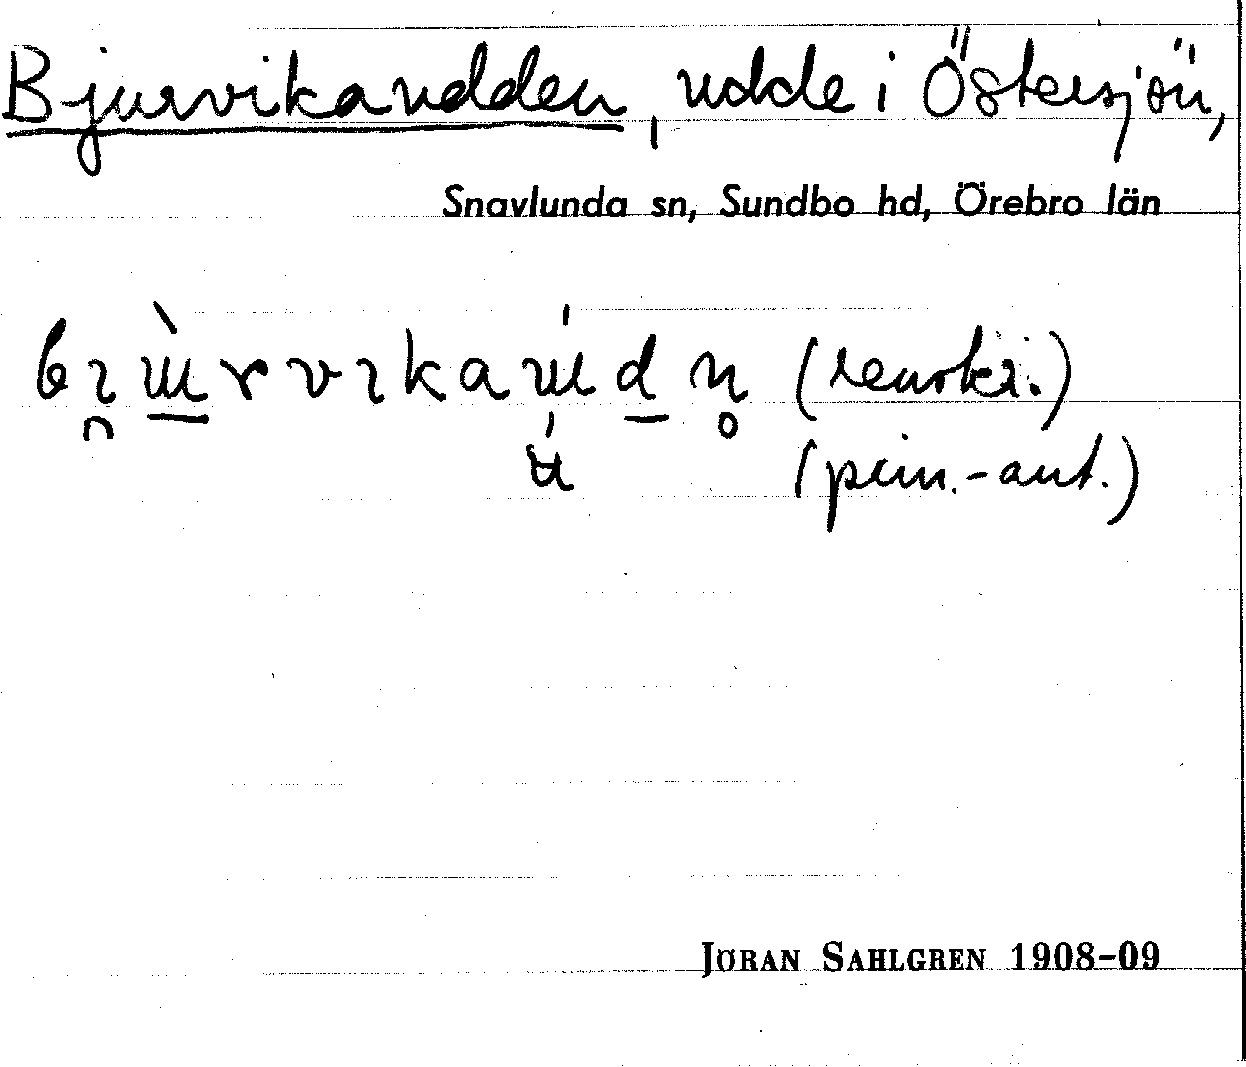 Bjurvikaudden, udde i Östersjön,
Snavlunda sn, Sundbo hd, Örebro län
(renskr.)
(prim.-ant.)
JÖRAN SAHLGREN 1908–09